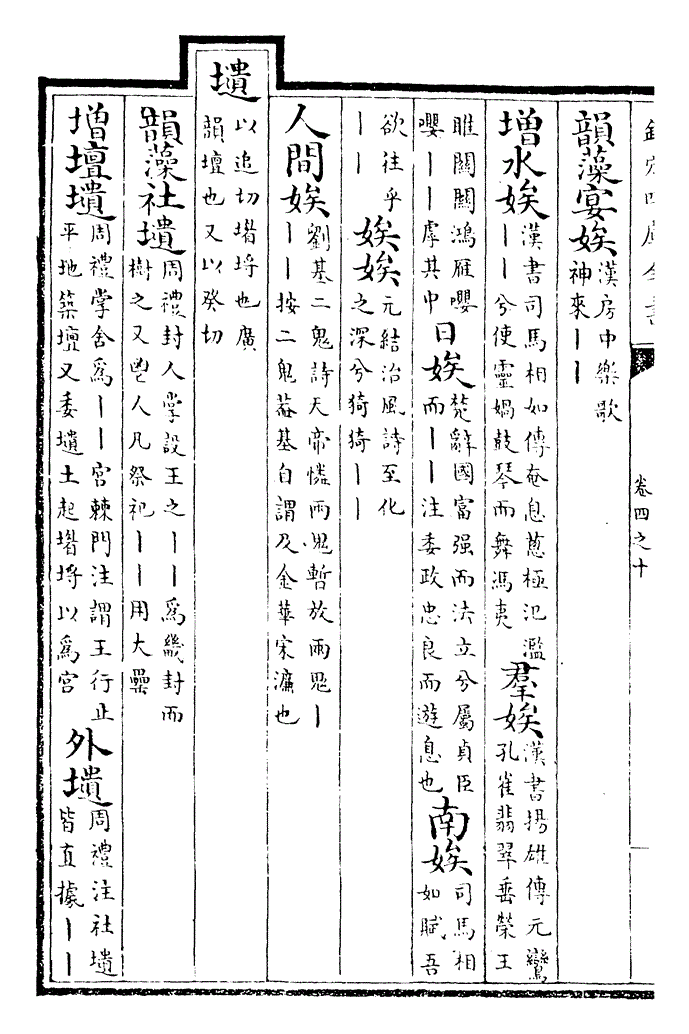 欽定四庫全書
卷四之十
韻藻宴娭漢房中樂歌
神來丨丨
增水娭漢書司馬相如傳奄息蔥極氾濫
丨丨兮使靈媧鼓琴而舞馮夷
羣娭漢書揚雄傳元鸞
孔雀翡翠垂榮王
雎關關鴻雁嚶
嚶丨丨虖其中
日娭楚辭國富强而法立兮屬貞臣
而丨丨注委政忠良而遊息也
南娭司馬相
如賦吾
欲往乎
丨丨
娭娭元結治風詩至化
之深兮猗猗丨丨
人間娭劉基二鬼詩天帝憐兩鬼暫放兩鬼丨
丨丨按二鬼蓋基自謂及金華宋濂也
壝
以追切堳埒也廣
韻壇也又以癸切
韻藻社壝周禮封人掌設王之丨丨爲畿封而
樹之又鬯人凡祭祀丨丨用大罍
增壇壝周禮掌舍爲丨丨宮棘門注謂王行止
平地築壇又委壝土起堳埒以爲宮
外壝周禮注社壝
皆直據丨丨